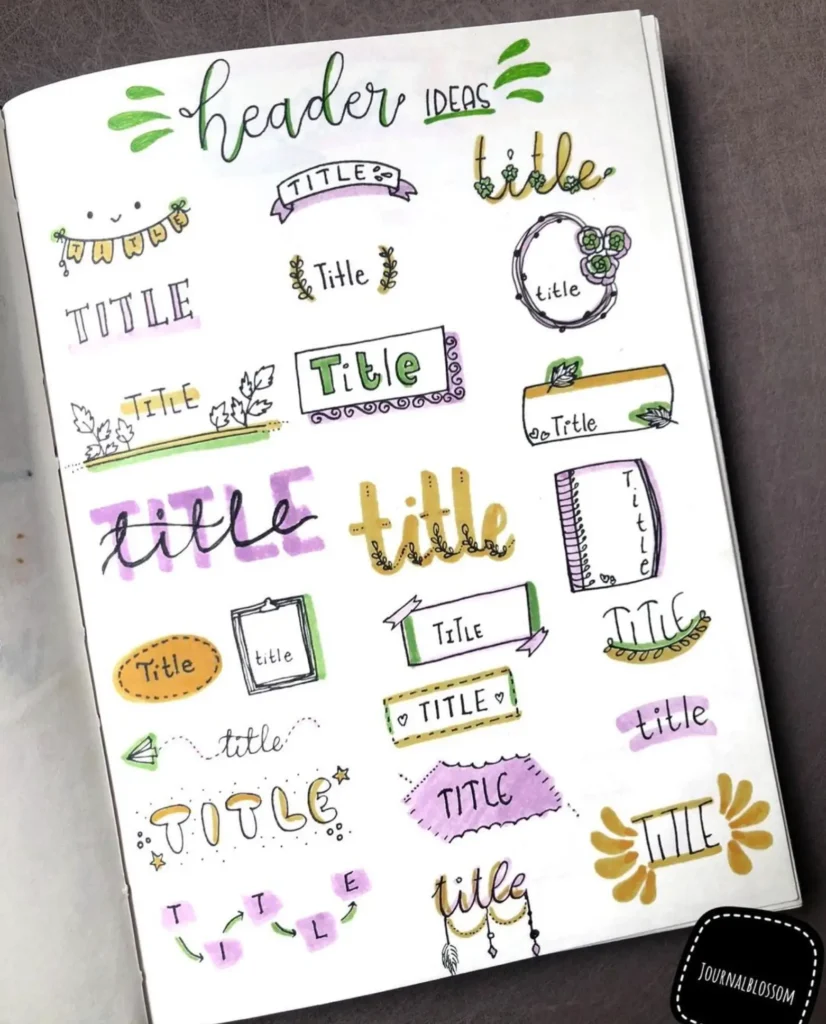 header IDEAS
TITLE
title
TITLE
Title
title
TITLE
TITLE
Title
Title
TITLE
title
title
Title
Title
title
TITLE
TITLE
title
TITLE
title
TITLE
TITLE
TITLE
TITLE
title
JOURNALBLOSSOM